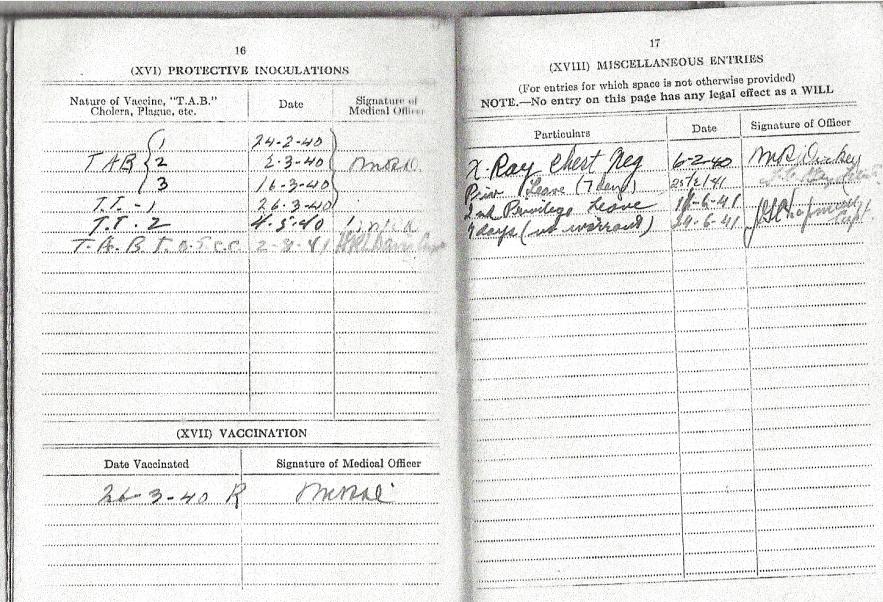 16
(XVI) PROTECTIVE INOCULATIONS
Nature of Vaccine, "T.A.B." Date Signature of
Cholera, Plague, etc. Medical Officer
1 24-2-40
TAB 2 2-3-40
3 16-3-40
T.T.-1 26-3-40
T.T.-2 4-5-40
T.A.B.T. 0.5 c.c. 2-8-41
(XVII) VACCINATION
Date Vaccinated Signature of Medical Officer
26-3-40 R
17
(XVIII) MISCELLANEOUS ENTRIES
(For entries for which space is not otherwise provided)
NOTE.—No entry on this page has any legal effect as a WILL
Particulars Date Signature of Officer
X-Ray Chest Neg 6-2-40
Priv Leave (7 days)
2nd Privilege Leave -6-41
7 days (no warrant) 24-6-41 Capt.